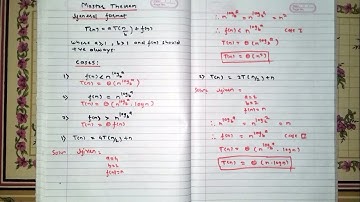 Master Theorem
General format
T(n) = aT(n/b) + f(n)
where a≥1, b>1 and f(n) should
+ve always
Cases:
1) f(n) < n^log_b^a
T(n) = Θ(n^log_b^a)
2) f(n) = n^log_b^a
T(n) = Θ(n^log_b^a · logn)
3) f(n) > n^log_b^a
T(n) = Θ f(n)
1) T(n) = 4T(n/2) + n
Soln Given =
a=4
b=2
f(n) = n
∴ n^log_b^a = n^log_2^4 = n^2
∴ f(n) < n^log_b^a case 1
T(n) = Θ(n^log_b^a)
T(n) = Θ(n^2)
2) T(n) = 2T(n/2) + n
Soln Given =
a=2
b=2
f(n) = n
∴ n^log_b^a = n^log_2^2 = n
∴ f(n) = n^log_b^a case 2
T(n) = Θ(n^log_b^a · logn)
T(n) = Θ(n·logn)